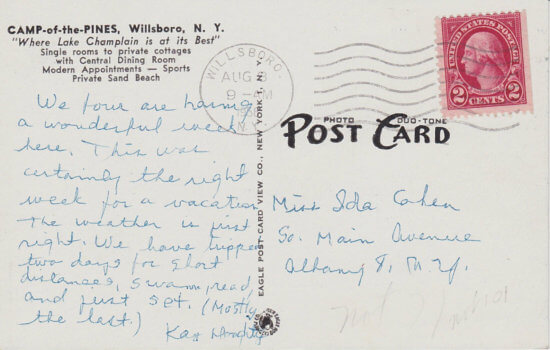 CAMP-of-the-PINES, Willsboro, N. Y.
"Where Lake Champlain is at its Best"
Single rooms to private cottages
with Central Dining Room
Modern Appointments — Sports
Private Sand Beach
We four are having
a wonderful week
here. This was
certainly the right
week for a vacation
The weather is just
right. We have
two days for short
distances, swam, read,
and just set. (Mostly
the last.)
Kay
WILLSBORO,
AUG 8
9 - AM
N.Y.
UNITED STATES POSTAGE
2 CENTS 2
PHOTO DUO-TONE
POST CARD
EAGLE POST-CARD VIEW CO., NEW YORK 1, N. Y.
Miss Ida Cohen
So. Main Avenue
Albany 8, N.Y.
not